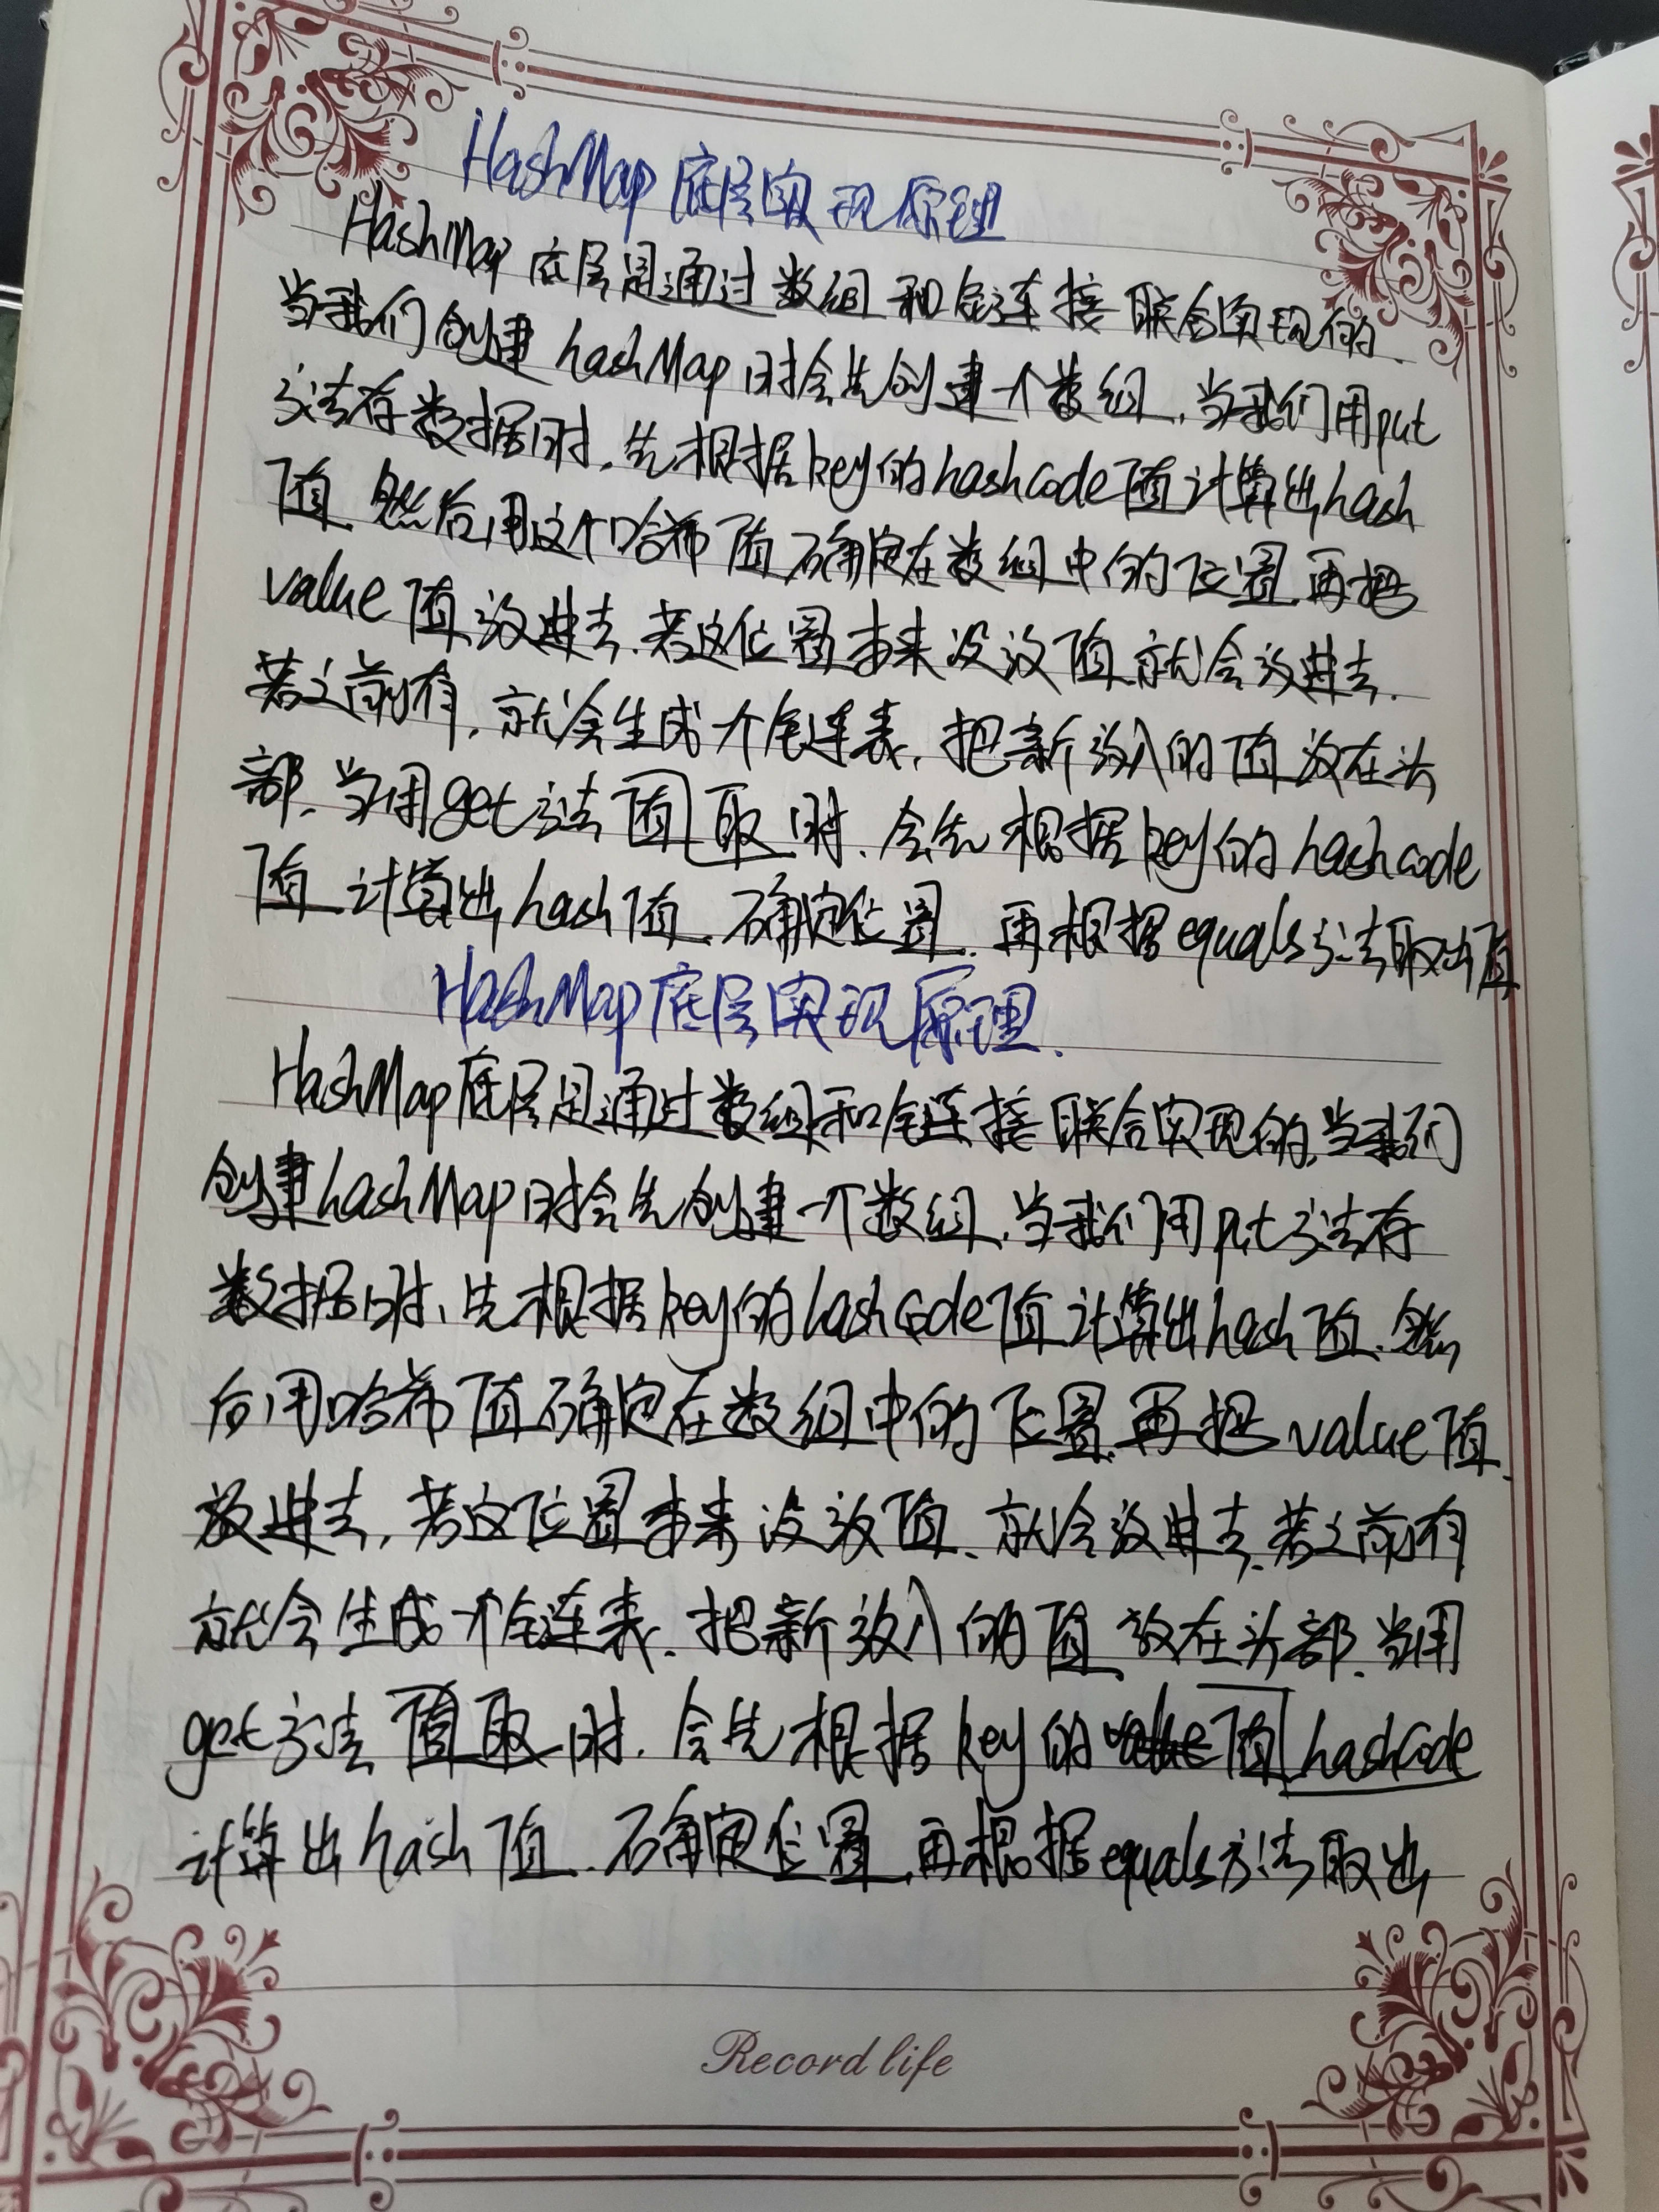 HashMap底层实现原理
HashMap底层是通过数组和连接联合实现的.
当我们创建hashMap时会先创建一个数组,当我们用put
方法存数据时,先根据key的hashcode值计算出hash
值.然后用这个哈希值确定在数组中的位置.再把
value值放进去.若这位置本来没放值就会放进去.
若之前有,就会生成个连表,把新放入的值放在头
部.当用get方法值取时.会先根据key的hashcode
值计算出hash值.确定位置.再根据equals方法取出值
HashMap底层实现原理.
HashMap底层是通过数组和连接联合实现的,当我们
创建hashMap时会先创建一个数组,当我们用put方法存
数据时、先根据key的hashcode值计算出hash值.然
后用哈希值确定在数组中的位置.再把value值
放进去,若这位置本来没放值、就会放进去.若之前有
就会生成个连表.把新放入的值放在头部.当用
get方法值取时.会先根据key的值hashcode
计算出hash值.确定位置.再根据equals方法取出
Record life